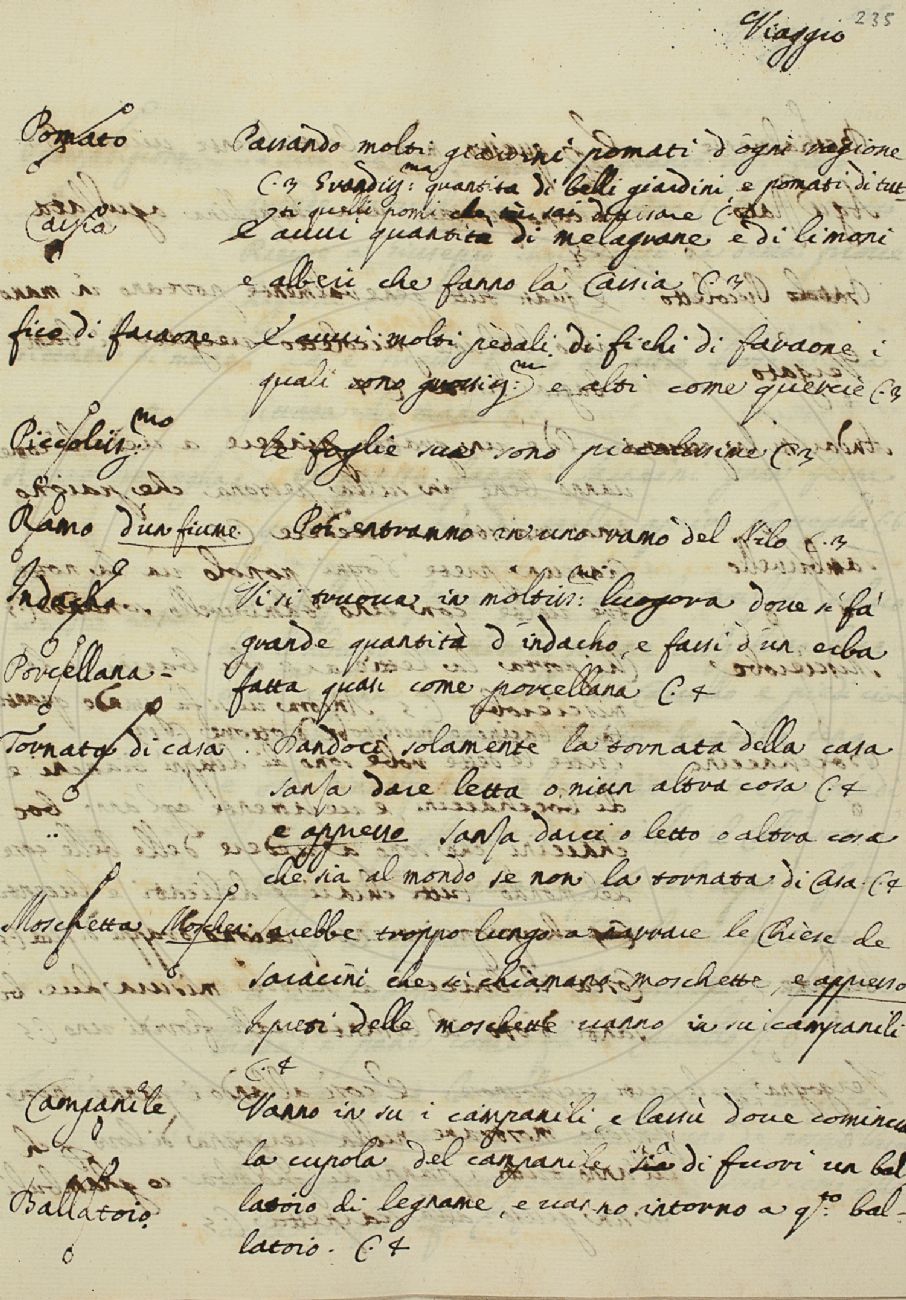 Viaggio 235
Pomato Passando molti giardini pomati d'ogni ragione
C. 3 Grandiss:ma quantita di belli giardini e pomati di tut-
ti quelli pomi che
Cassia E auui quantita di melagrane e di limoni
e alberi che fanno la Cassia C. 3
fico di faraone E auui molti pedali di fichi di faraone i
quali sono grossiss:mi e alti come quercie C. 3
Piccoliss:mo le foglie sue sono piccolissime C. 3
Ramo d'un fiume Poi entranno in uno ramo del Nilo C. 3
Indacho Vi si truoua in moltiss:me luogora doue si fa
grande quantità d'indacho, e fassi d'un erba
Porcellana - fatta quasi come porcellana C. 4
Tornata di casa Dandoci solamente la tornata della casa
sanza dare letta o niun altra cosa C. 4
e appresso sanza darci o letto o altra cosa
che sia al mondo se non la tornata di Casa C. 4
Moschetta Moschea Sarebbe troppo lungo a narrare le Chiese de
saracini che si chiamano moschette, e appresso
I preti delle moschette uanno in su i campanili
C. 4
Campanile Vanno in su i campanili, e lassù doue comincia
la cupola del campanile si a di fuori un bal
Ballatoio latoio di legname, e uanno intorno a q.to bal-
latoio. C. 4